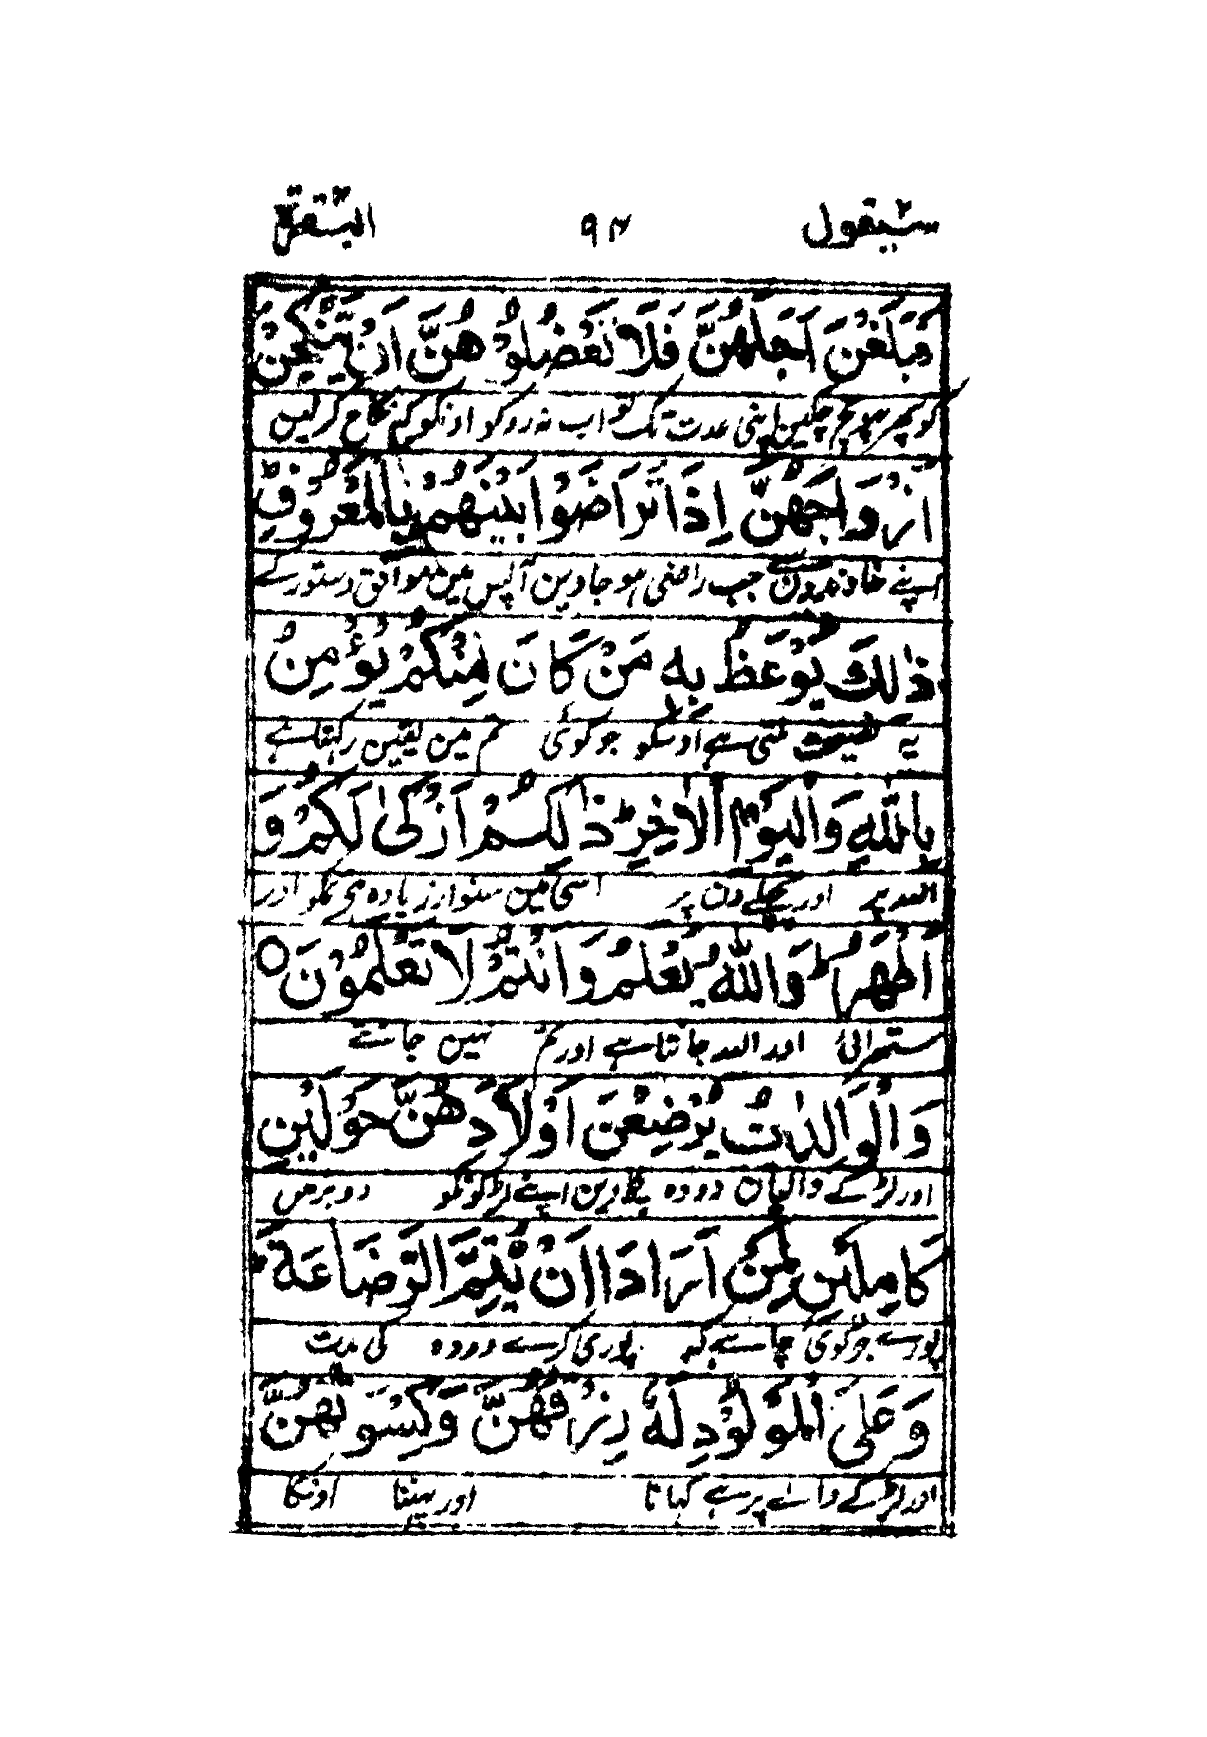 سیقول ۹۴ البقرة
فَبَلَغْنَ اَجَلَهُنَّ فَلَا تَعْضُلُوْ هُنَّ اَنْ یَّنْكِحْنَ
کو پھر پہونچ چکیں اپنی عدت تک تو اب نہ روکو اونکو کہ نکاح کر لیں
اَزْوَاجَهُنَّ اِذَا تَرَاضَوْا بَیْنَهُمْ بِالْمَعْرُوْفِ ؕ
اپنے خاوندوں سے جب راضی ہو جاویں آپس میں موافق دستور کے
ذٰلِكَ یُوْعَظُ بِهٖ مَنْ كَانَ مِنْكُمْ یُؤْمِنُ
یہ نصیحت ملتی ہے اوسکو جو کوئی تم میں یقین رکھتا ہے
بِاللّٰهِ وَالْیَوْمِ الْاٰخِرِ ؕ ذٰلِكُمْ اَزْكٰى لَكُمْ وَ
اللہ پر اور پچھلے دن پر اسی میں سنوار زیادہ ہے تمکو اور
اَطْهَرُ ؕ وَاللّٰهُ یَعْلَمُ وَاَنْتُمْ لَا تَعْلَمُوْنَ ○
ستھرائی اور اللہ جانتا ہے اور تم نہیں جانتے
وَالْوَالِدٰتُ یُرْضِعْنَ اَوْلَادَهُنَّ حَوْلَیْنِ
اور لڑکے والیاں دودہ پلاویں اپنے لڑکونکو دو برس
كَامِلَیْنِ لِمَنْ اَرَادَ اَنْ یُّتِمَّ الرَّضَاعَةَ ؕ
پورے جو کوئی چاہے کہ پوری کرے دودہ کی مدت
وَعَلَى الْمَوْلُوْدِ لَهٗ رِزْقُهُنَّ وَكِسْوَتُهُنَّ
اور لڑکے والے پر ہے کہانا اور پہننا اونکا